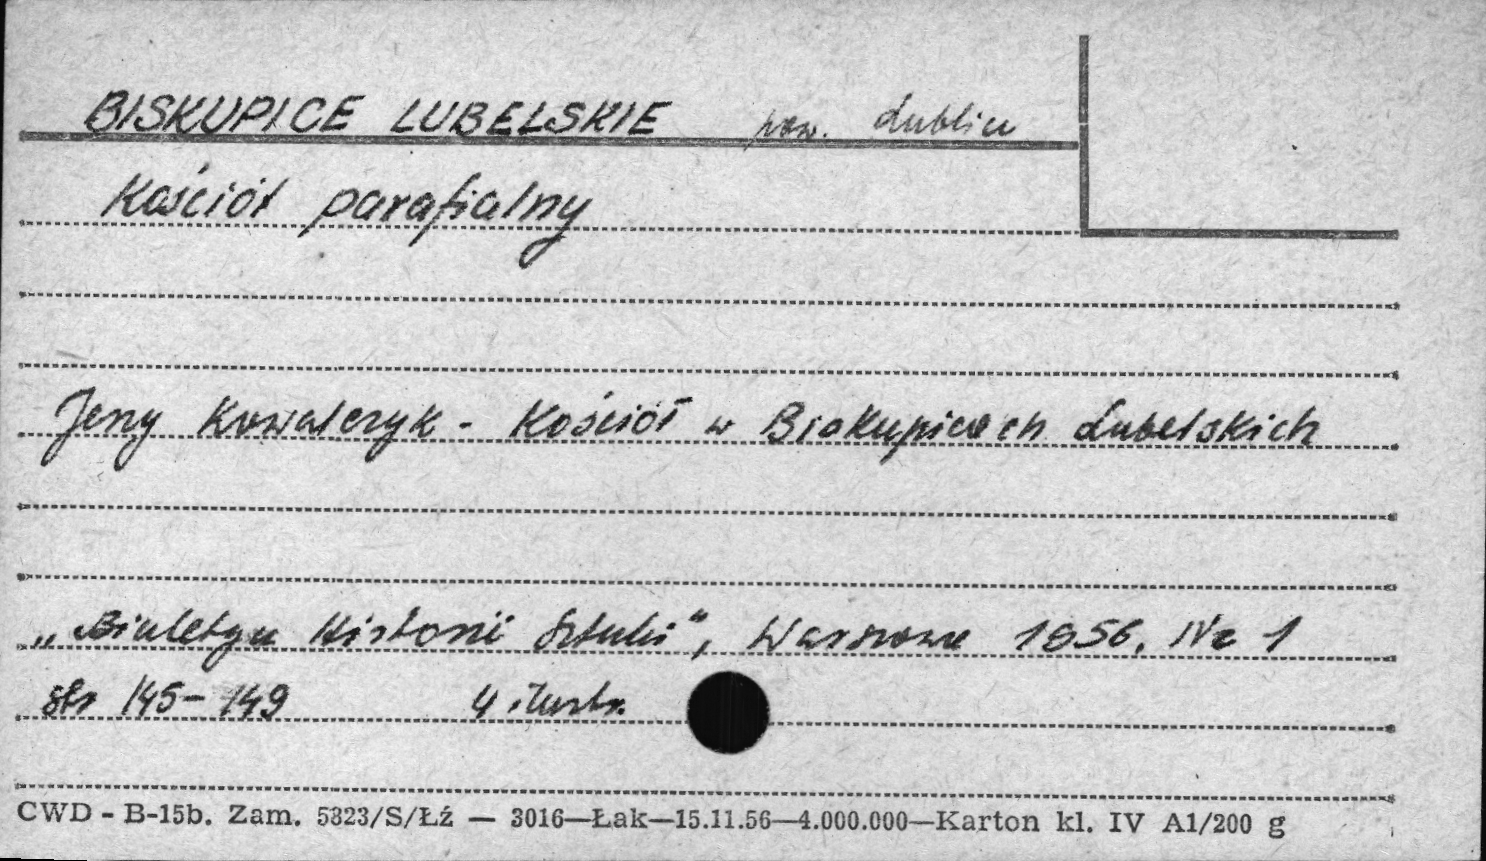 BISKUPICE LUBELSKIE pow. Lublin
Kościół parafialny
Jerzy Kowalczyk - Kościół w Biskupicach Lubelskich
„Biuletyn Historii Sztuki", Warszawa 1956, Nr 1
str 145-149 4 ilustr.
CWD - B-15b. Zam. 5323/S/Łź — 3016—Łak—15.11.56—4.000.000—Karton kl. IV A1/200 g